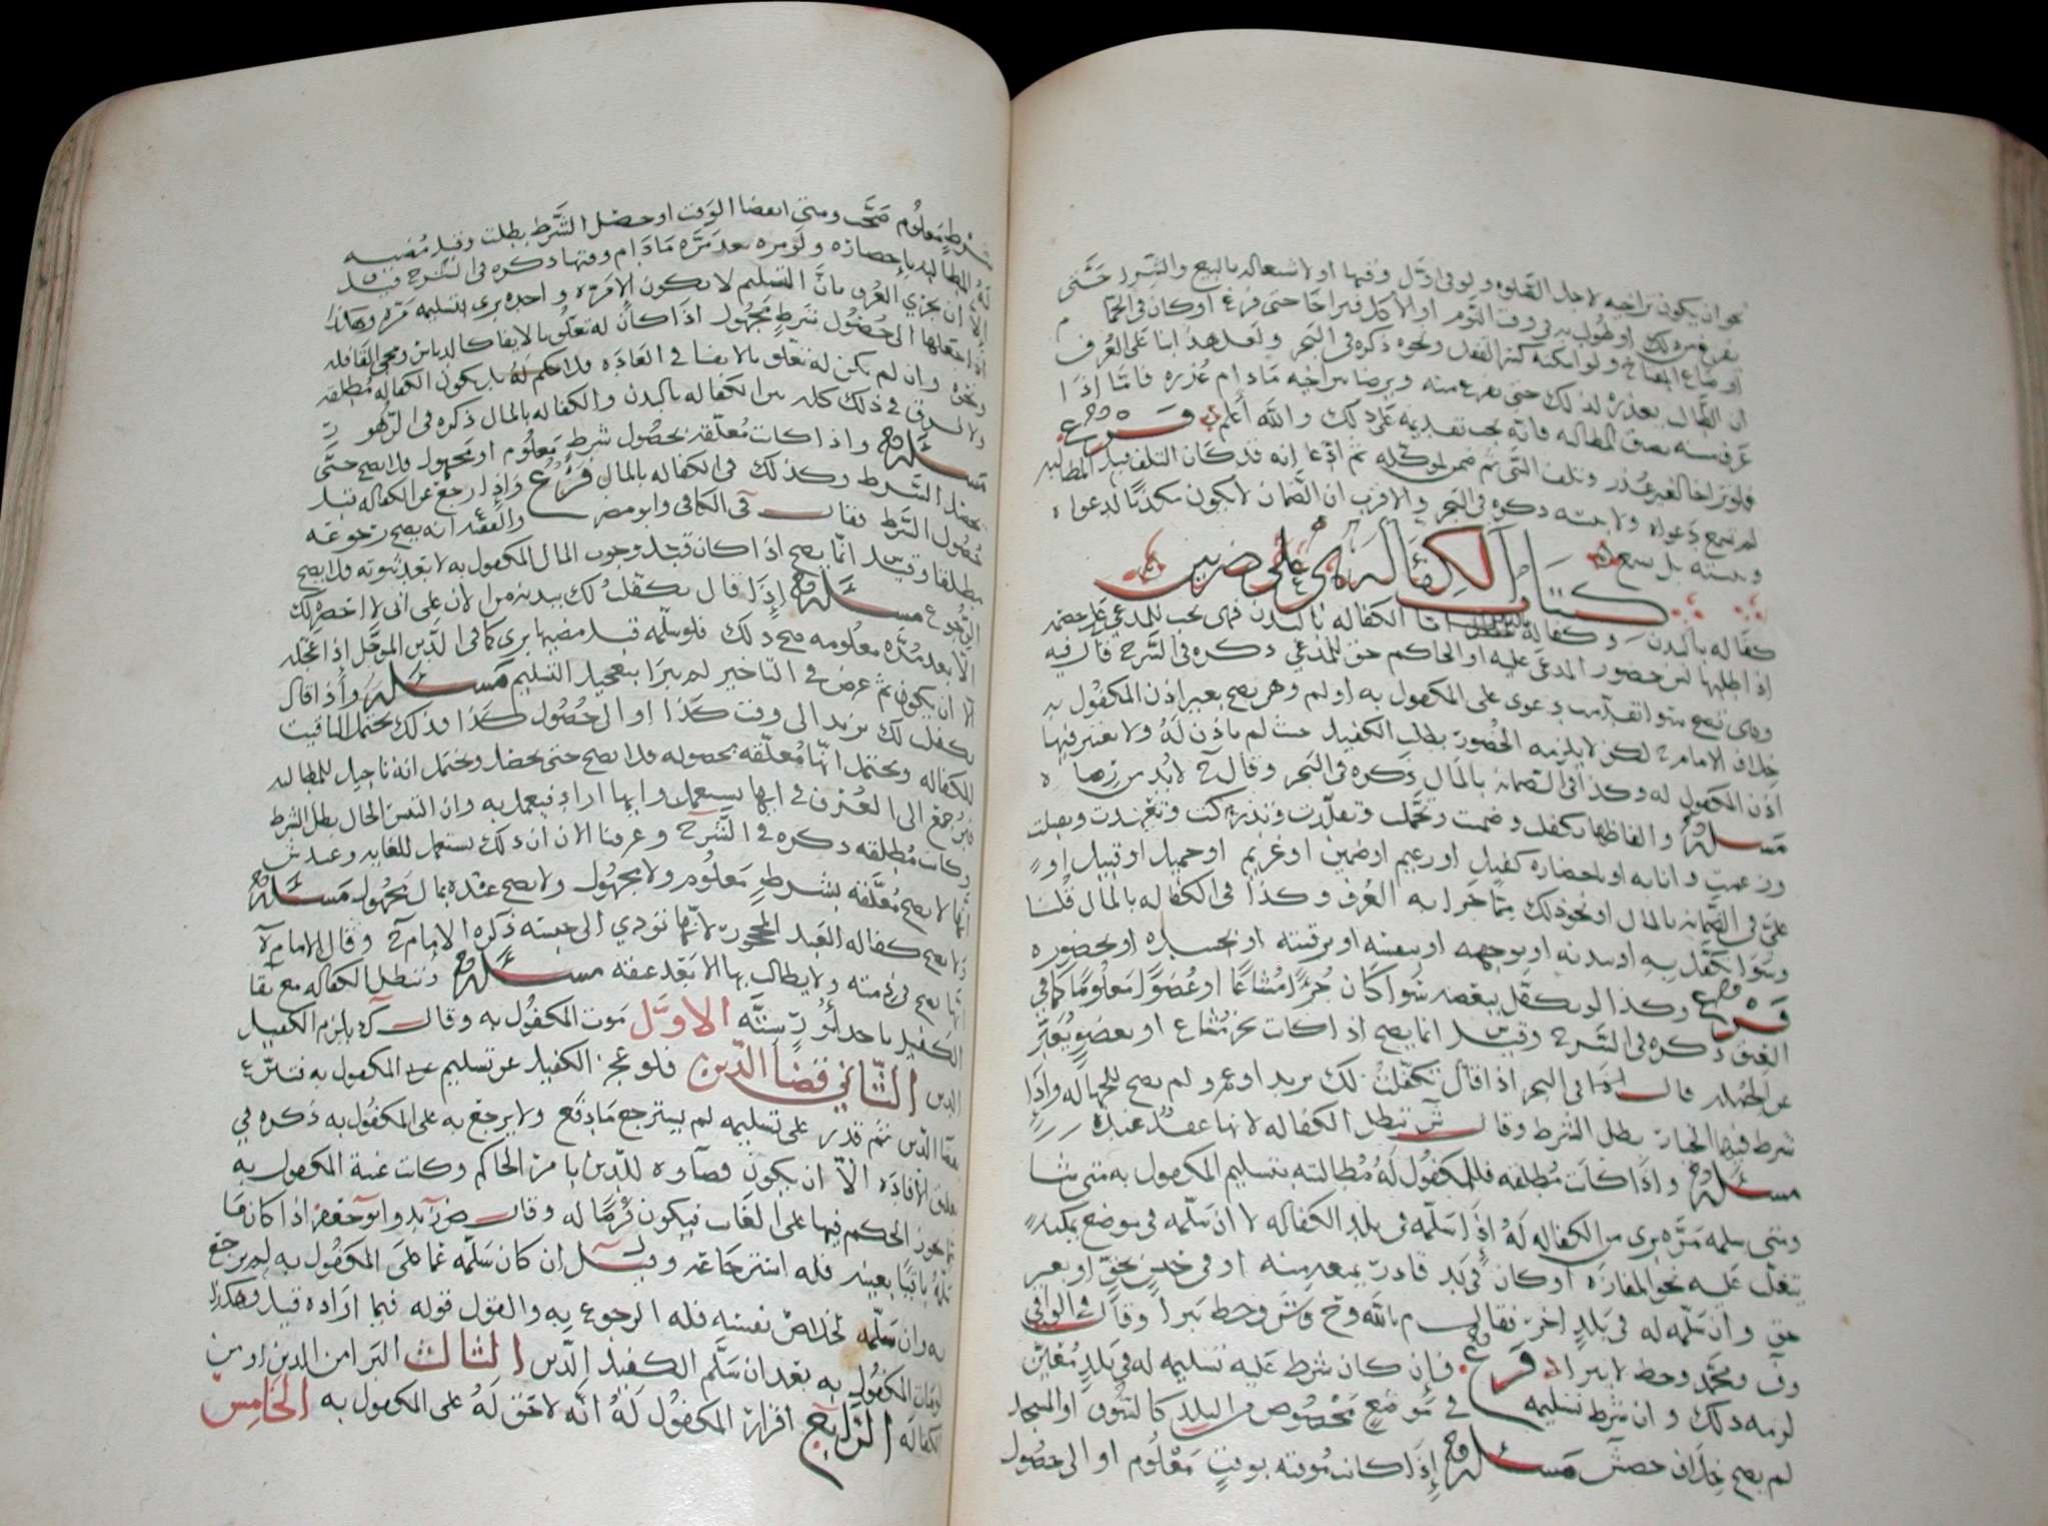 نحو ان يكون تراخيه لاجل الصلوه ولو في اول وقتها او لاشتغاله بالبيع والشرا حتى
يفرغ من ذلك او طولب به في وقت النوم او الاكل فتراخا حتى فرغ او كان في الحمام
او ضاع المفتاح ولو امكنه كسر القفل ونحوه ذكره في البحر ولعل هذا بنا على العرف
ان الطالب يعذره لذلك حتى يفرغ منه ويرضا بتراخيه مادام عذره فاما اذا
عرف منه يصق المطالبه فانه يجب تقديمه على ذلك والله اعلم فرع
فلو تراخا لغير عذر وتلف الشي ثم ضمن لموكله ثم ادعا انه قد كان التلف قبل المطالبه
لم تسمع دعواه ولا بينته ذكره في البحر والاقرب ان الضمان لا يكون مكذبا لدعواه
وبينته بل تسمع
كتاب الكفاله هي على ضربين
كفاله بالبدن وكفاله بالمال اما الكفاله بالبدن فهي تجب للمدعي على خصمه
اذا طلبها لان حضور المدعى عليه او الحاكم حق للمدعي ذكره في الشرح قال فيه
وهي تصح سوا تقدمت دعوى على المكفول به او لم وهي تصح بغير اذن المكفول به
خلاف الامام ح لكن لا يلزمه الحضور بطلب الكفيل حيث لم ياذن له ولا يعتبر فيها
اذن المكفول له وكذا في الضمانه بالمال ذكره في البحر وقال ح لا بد من رضاه
مسئله والفاظها تكفلت وضمنت وتحملت وتقلدت وتذركت وتعهدت وتقبلت
وزعمت وانا به او باحضاره كفيل او زعيم او ضمين او غريم او حميل او قبيل او
علي في الضمانه بالمال او نحو ذلك مما جرا به العرف وكذا في الكفاله بالمال قلنا
وسوا تكفل به او ببدنه او بوجهه او بنفسه او برقبته او بجسده او بحضوره
فرع وكذا لو تكفل ببعضه سوا كان جزا مشاعا او عضوا معلوما كما في
العتق ذكره في الشرح وقيل انما يصح اذا كانت بجز مشاع او بعضو يعبر به
عن الجمله قال في البحر اذا قال تكفلت لك بزيد او عمرو لم يصح للجهاله واذا
شرط فيها الخيار بطل الشرط وقال ش تبطل الكفاله لانها عقد عنده
مسئله واذا كانت مطلقه فللمكفول له مطالبته بتسليم المكفول به متى شا
ومتى سلمه مره برى من الكفاله له اذا سلمه في بلد الكفاله لا ان سلمه في موضع
يتغلب عليه نحو المفازه او كان في يد قادر يمنعه منه او في حبس بحق او بغير
حق وان سلمه له في بلد اخر فقال م بالله وح وش وحط يبرا وقال في الوافي
وف ومحمد وحط لا يبرا فرع فان كان شرط عليه تسليمه له في بلد معين
لزمه ذلك وان شرط تسليمه في موضع مخصوص من البلد كالسوق او المسجد
لم يصح خلاف مسئله اذا كانت موقته بوقت معلوم او الى حصول
شرط معلوم صحت ومتى انقضا الوقت او حصل الشرط بطلت وقبل مضيه
له المطالبه باحضاره ولو مره بعد مره مادام وقتها ذكره في الشرح قيل
الا ان يجري العرف بان التسليم لا يكون الا مره واحده برى بتسليمه مره وهكذا
اذا جعلها الى حصول شرط مجهول اذا كان له تعلق بالايفا كالدياس ومجي القافله
ونحوه وان لم يكن له تعلق بالايفا في العاده فلا حكم له بل يكون الكفاله مطلقه
ولا فرق في ذلك كله بين الكفاله بالبدن والكفاله بالمال ذكره في الزهور
مسئله واذا كانت معلقه بحصول شرط معلوم او مجهول فلا تصح حتى
يحصل الشرط وكذلك في الكفاله بالمال فرع واذا رجع عن الكفاله قبل
حصول الشرط فقال في الكافي وابو مضر والفقه انه يصح رجوعه
مطلقا وقيل انما يصح اذا كان قبل وجوب المال المكفول به لا بعد ثبوته فلا يصح
الرجوع مسئله اذا قال تكفلت لك ببدنه من الان على اني لا احضره لك
الا بعد مده معلومه صح ذلك فلو سلمه قبل مضيها برى كما في الدين المؤجل اذا عجله
الا ان يكون ثم غرض في التاخير لم يبرا بتعجيل التسليم مسئله واذا قال
تكفلت لك بزيد الى وقت كذا او الى حصول كذا فذلك يحتمل التاقيت
للكفاله ويحتمل انها معلقه بحصوله فلا تصح حتى يحصل ويحتمل انه تاجيل للمطالبه
فيرجع الى العرف في ايها يستعمل وايها اراد فيعمل به وان التبس الحال بطل الشرط
وكانت مطلقه ذكره في الشرح وعرفنا الان ان ذلك يستعمل للغايه وعند ش
انها لا تصح معلقه بشرط معلوم ولا مجهول ولا تصح عنده بمال مجهول مسئله
ولا تصح كفاله العبد المحجور لانها تودي الى حبسه ذكره الامام ح وقال الامام
انها تصح في ذمته ولا يطالب بها الا بعد عتقه مسئله وتبطل الكفاله مع بقا
الكفيل باحد امور سته الاول موت المكفول به وقال ك يلزم الكفيل
الدين الثاني قضا الدين فلو عجز الكفيل عن تسليم المكفول به فتبرع
بقضا الدين ثم قدر على تسليمه لم يسترجع ما دفع ولا يرجع به على المكفول به ذكره في
الافاده الا ان يكون قضاوه للدين بامر الحاكم وكانت غيبة المكفول به
يجوز الحكم فيها على الغايب فيكون قرضا له وقال ض زيد وابو جعفر اذا كان ما
سلمه باقيا بعينه فله استرجاعه وقيل ان كان سلمه عما على المكفول به لم يرجع
به وان سلمه لخلاص نفسه فله الرجوع به والقول قوله فيما اراده قيل وهكذا
لو مات المكفول به بعد ان سلم الكفيل الدين الثالث البرا من الدين او من
الكفاله الرابع اقرار المكفول له انه لا حق له على المكفول به الخامس